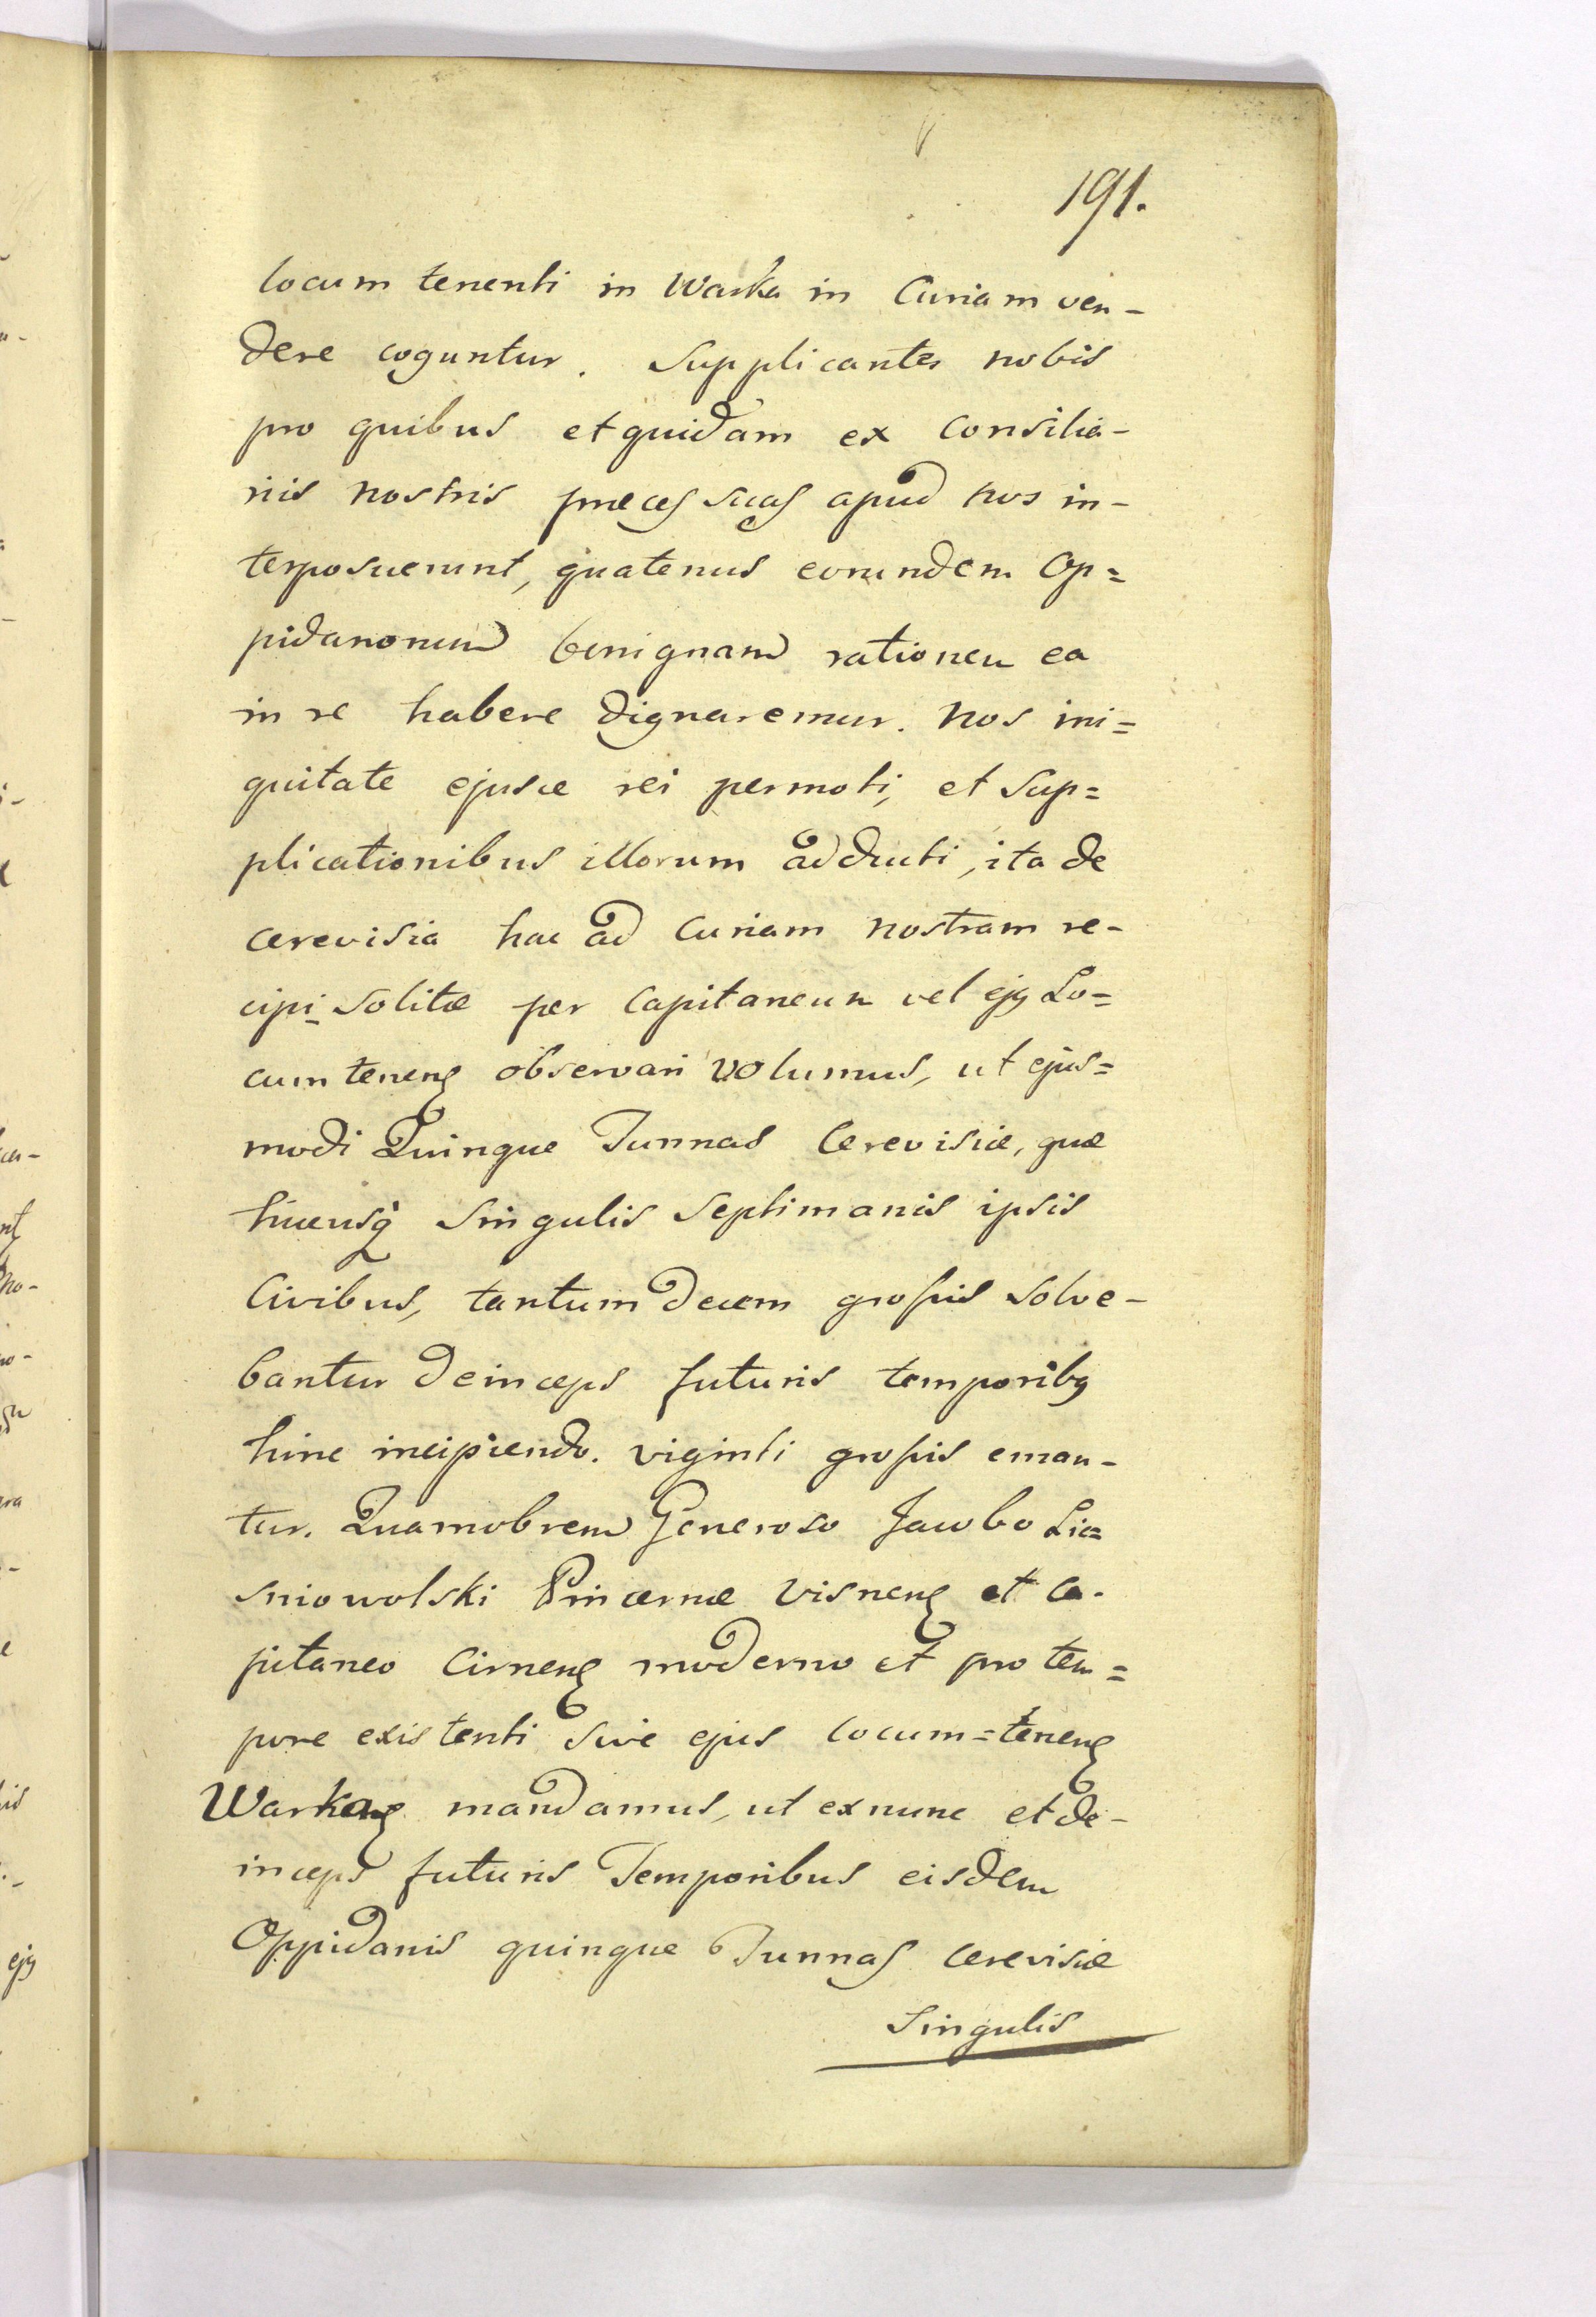 191.
locum tenenti in Warka in Curiam ven-
dere coguntur. Supplicantes nobis
pro quibus et quidam ex Consilia-
riis nostris præces suas apud nos in-
terposuerunt, quatenus eorundem Op=
pidanorum benignam rationem ea
in re habere dignaremur. Nos ini=
quitate ejusce rei permoti, et Sup=
plicationibus illorum adducti, ita de
cerevisia hac ad Curiam nostram re-
cipi solitæ per Capitaneum vel ejꝫ Lo=
cum tenenȩ observari volumus, ut ejus=
modi Quinque Tunnas Cerevisiæ, quæ
hucusq̀ singulis Septimanis ipsis
Civibus, tantum decem grossis solve-
bantur deinceps futuris temporibꝫ
hinc incipiendo. viginti grossis eman-
tur. Quamobrem Generoso Jacobo Lia=
sniowolski Pincernæ Visnenȩ et Ca-
pitaneo Cirnenȩ moderno et pro tem=
pore existenti sive ejus locum=tenenȩ
Warkenȩ mandamus, ut ex nunc et de-
inceps futuris Temporibus eisdem
Oppidanis quinque Tunnas cerevisiæ
Singulis